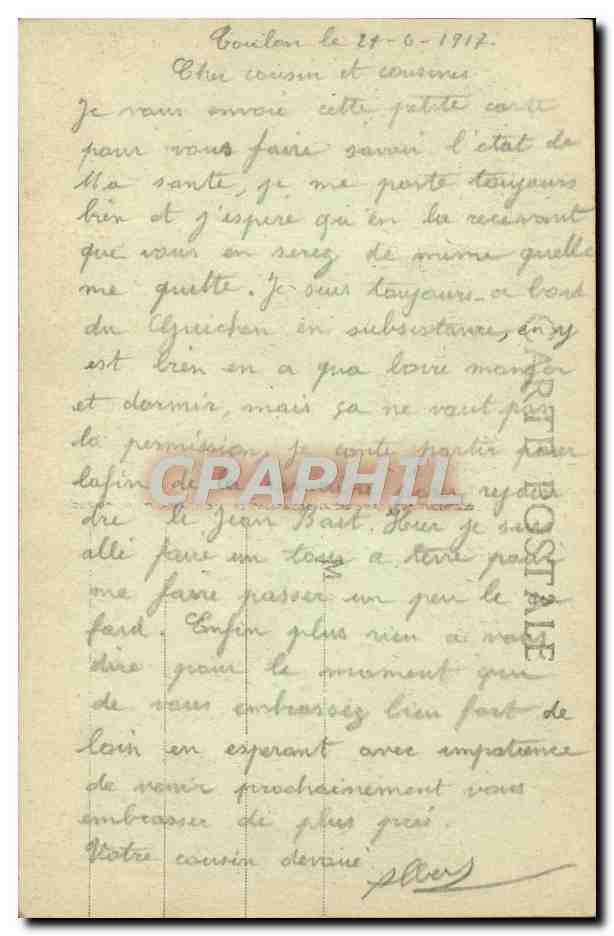 Toulon le 24-6-1917.
Cher cousin et cousines
Je vous envoie cette petite carte
pour vous faire savoir l'etat de
Ma santé, je me porte toujours
bien et j'espere qu'en la recevant
que vous en serez de mime quelle
me quitte. Je suis toujours a bord
du Guichen en subsistance, on y
est bien en a qua boire manger
et dormir, mais ça ne vaut pas
la permission, je conte partir pour
lafin de la rejoin
dre le Jean Bart. Hier je suis
allé faire un tour a terre pour
me faire passer un peu le
fard. Enfin plus rien a vous
dire pour le moment que
de vous embrassez bien fort de
loin en esperant avec impatience
de venir prochainement vous
embrasser de plus prés.
Votre cousin devoué
Albert
CARTE POSTALE
M
CPAPHIL